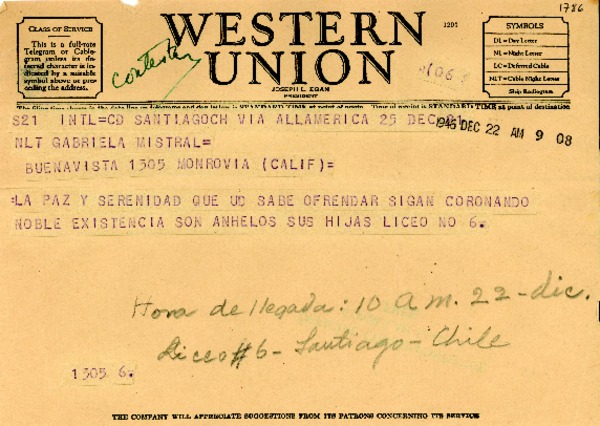 1786
CLASS OF SERVICE
This is a full-rate
Telegram or Cable-
gram unless its de-
ferred character is in-
dicated by a suitable
symbol above or pre-
ceding the address.
WESTERN
UNION
JOSEPH L. EGAN
PRESIDENT
1201
SYMBOLS
DL = Day Letter
NL = Night Letter
LC = Deferred Cable
NLT = Cable Night Letter
Ship Radiogram
contestar
STANDARD TIME at point of origin. STANDARD TIME at point of destination
S21 INTL=CD SANTIAGOCH VIA ALLAMERICA 25 DEC 21
1945 DEC 22 AM 9 08
NLT GABRIELA MISTRAL=
BUENAVISTA 1305 MONROVIA (CALIF)=
:LA PAZ Y SERENIDAD QUE UD SABE OFRENDAR SIGAN CORONANDO
NOBLE EXISTENCIA SON ANHELOS SUS HIJAS LICEO NO 6.
Hora de llegada: 10 a m. 22-dic.
Liceo #6 - Santiago - Chile
1305 6.
THE COMPANY WILL APPRECIATE SUGGESTIONS FROM ITS PATRONS CONCERNING ITS SERVICE